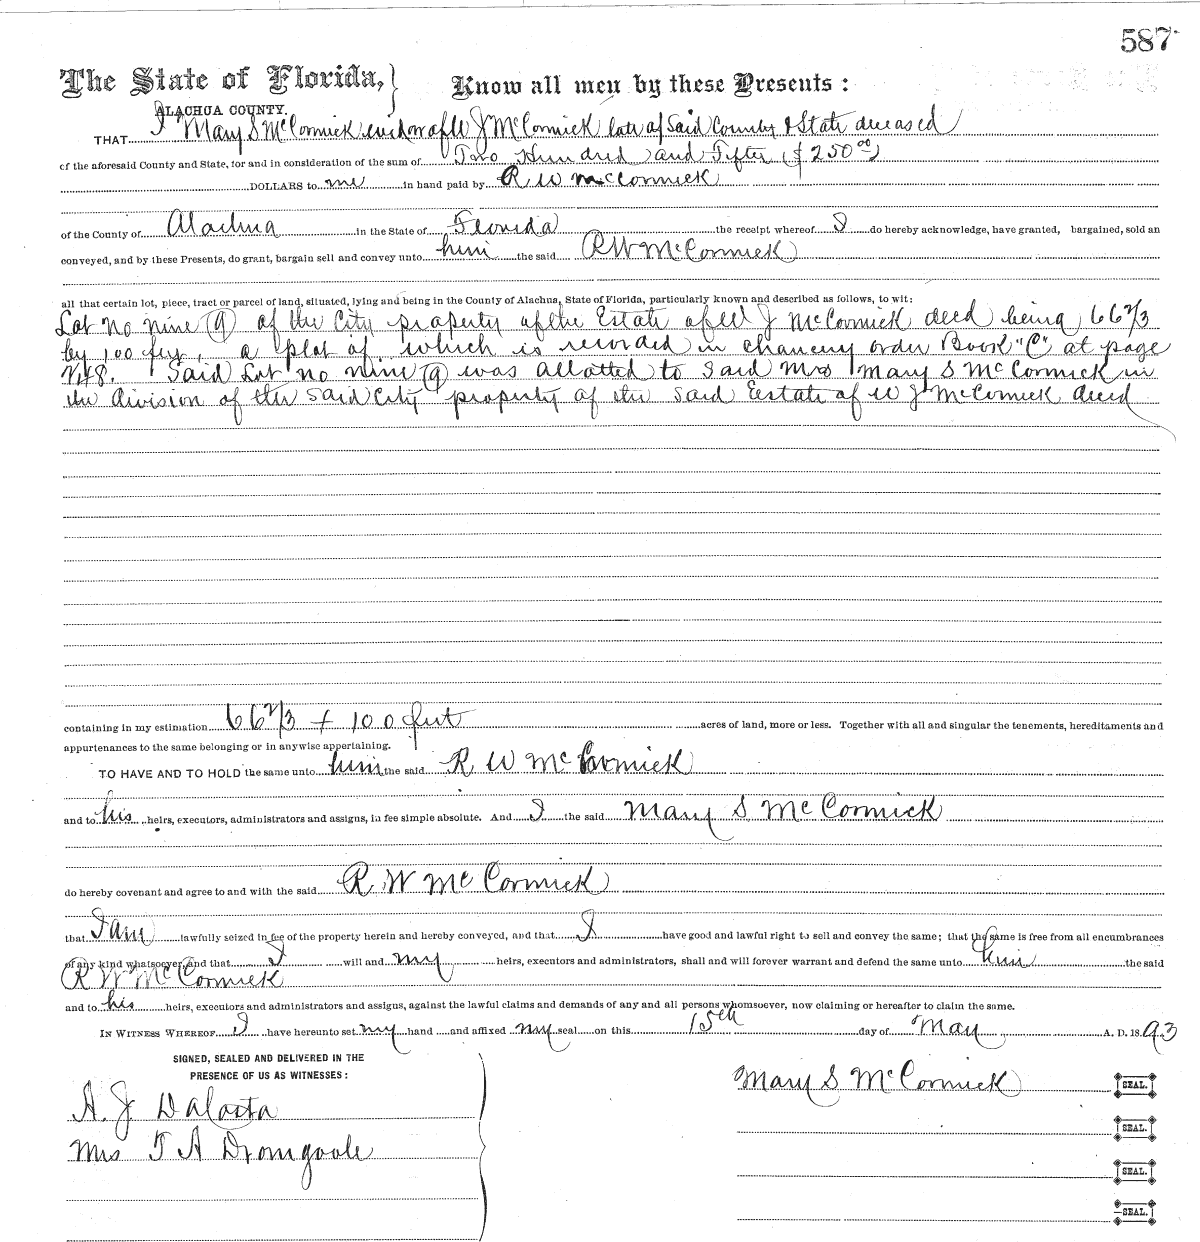 587
The State of Florida, } Know all men by these Presents :
ALACHUA COUNTY.
THAT I Mary S McCormick widow of W J McCormick late of Said County & State deceased
of the aforesaid County and State, for and in consideration of the sum of Two Hundred and Fifter ($250 00)
DOLLARS to me in hand paid by R W McCormick
of the County of Alachua in the State of Florida the receipt whereof I do hereby acknowledge, have granted, bargained, sold an
conveyed, and by these Presents, do grant, bargain sell and convey unto him the said R W McCormick
all that certain lot, piece, tract or parcel of land, situated, lying and being in the County of Alachua, State of Florida, particularly known and described as follows, to wit:
Lot no nine (9) of the City property of the Estate of W J McCormick decd being 66 2/3
by 100 feet, a plat of which is recorded in chancery order Book "C" at page
Said Lot no nine (9) was allotted to said Mrs Mary S McCormick in
the division of the said City property of the said Eestate of W J McCormick decd
containing in my estimation 66 2/3 + 100 feet acres of land, more or less. Together with all and singular the tenements, hereditaments and
appurtenances to the same belonging or in anywise appertaining.
TO HAVE AND TO HOLD the same unto him the said R W McCormick
and to his heirs, executors, administrators and assigns, in fee simple absolute. And I the said Mary S McCormick
do hereby covenant and agree to and with the said R W McCormick
that I am lawfully seized in fee of the property herein and hereby conveyed, and that I have good and lawful right to sell and convey the same; that the same is free from all encumbrances
of any kind whatsoever, and that I will and my heirs, executors and administrators, shall and will forever warrant and defend the same unto him the said
R W McCormick
and to his heirs, executors and administrators and assigns, against the lawful claims and demands of any and all persons whomsoever, now claiming or hereafter to claim the same.
IN WITNESS WHEREOF I have hereunto set my hand and affixed my seal on this 15th day of May A. D. 1893
SIGNED, SEALED AND DELIVERED IN THE
PRESENCE OF US AS WITNESSES :
Mary S McCormick SEAL.
A. J. DaCosta
SEAL.
Mrs T A Dromgoole
SEAL.
SEAL.